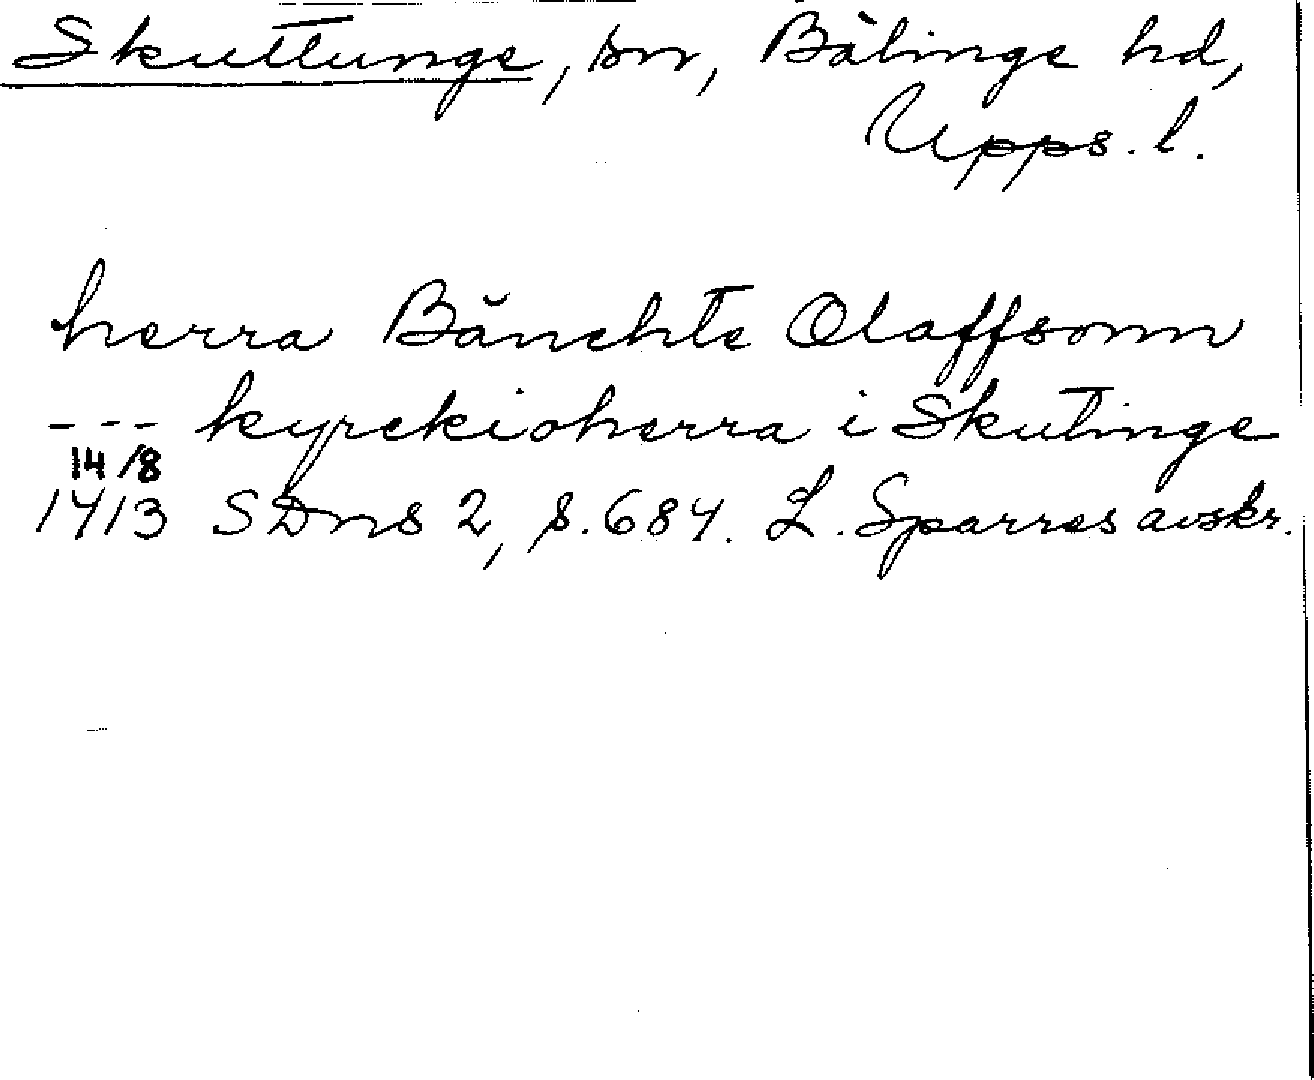 Skuttunge, sn, Bälinge hd,
Upps. l.
herra Bänchte Olaffsonn
--- kyrckioherra i Skutinge
14/8
1413 SDns 2, s. 684. L. Sparres avskr.